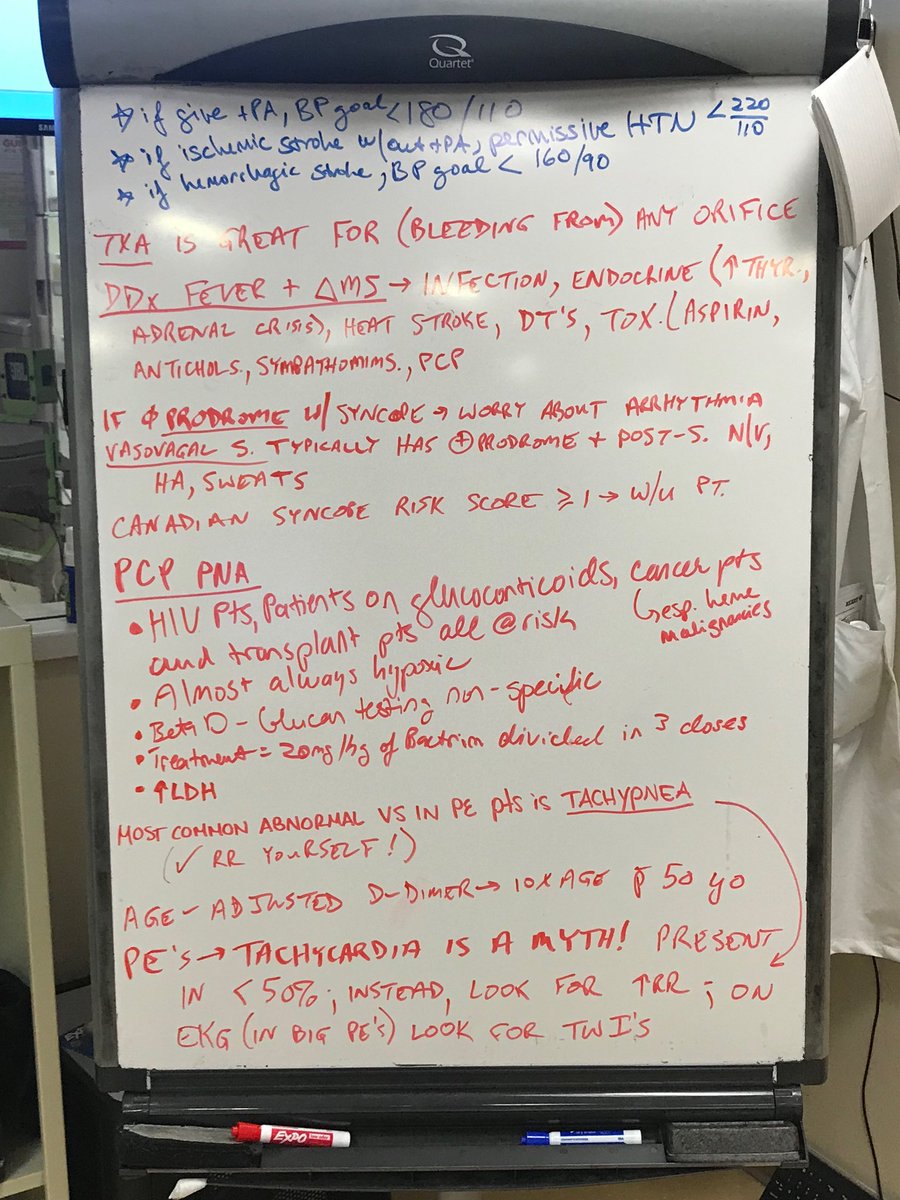 Quartet
☆ if give tPA, BP goal <180/110
☆ if ischemic stroke w/out tPA, permissive HTN < 220/110
☆ if hemorrhagic stroke, BP goal < 160/90
TXA IS GREAT FOR (BLEEDING FROM) ANY ORIFICE
DDx FEVER + ΔMS → INFECTION, ENDOCRINE (↑THYR.,
ADRENAL CRISIS), HEAT STROKE, DT'S, TOX. (ASPIRIN,
ANTICHOLS., SYMPATHOMIMS., PCP
IF ϕ PRODROME W/ SYNCOPE → WORRY ABOUT ARRHYTHMIA
VASOVAGAL S. TYPICALLY HAS ⊕PRODROME + POST-S. N/V,
HA, SWEATS
CANADIAN SYNCOPE RISK SCORE ≥1 → W/U PT.
PCP PNA
• HIV Pts, Patients on glucocorticoids, cancer pts
↳ esp. heme
malignancies
and transplant pts all @ risk
• Almost always hypoxic
• Beta D-Glucan testing non-specific
• Treatment = 20mg/kg of Bactrim divided in 3 doses
• ↑LDH
MOST COMMON ABNORMAL VS IN PE pts is TACHYPNEA
(✓ RR YOURSELF!)
AGE-ADJUSTED D-DIMER → 10X AGE p̄ 50 yo
PE'S → TACHYCARDIA IS A MYTH! PRESENT
IN <50%; INSTEAD, LOOK FOR ↑RR; ON
EKG (IN BIG PE'S) LOOK FOR TWI'S
EXPO